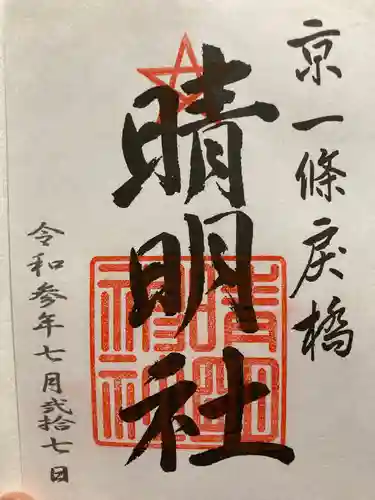 京一條戻橋
晴明社
晴明神社
令和参年七月弐拾七日